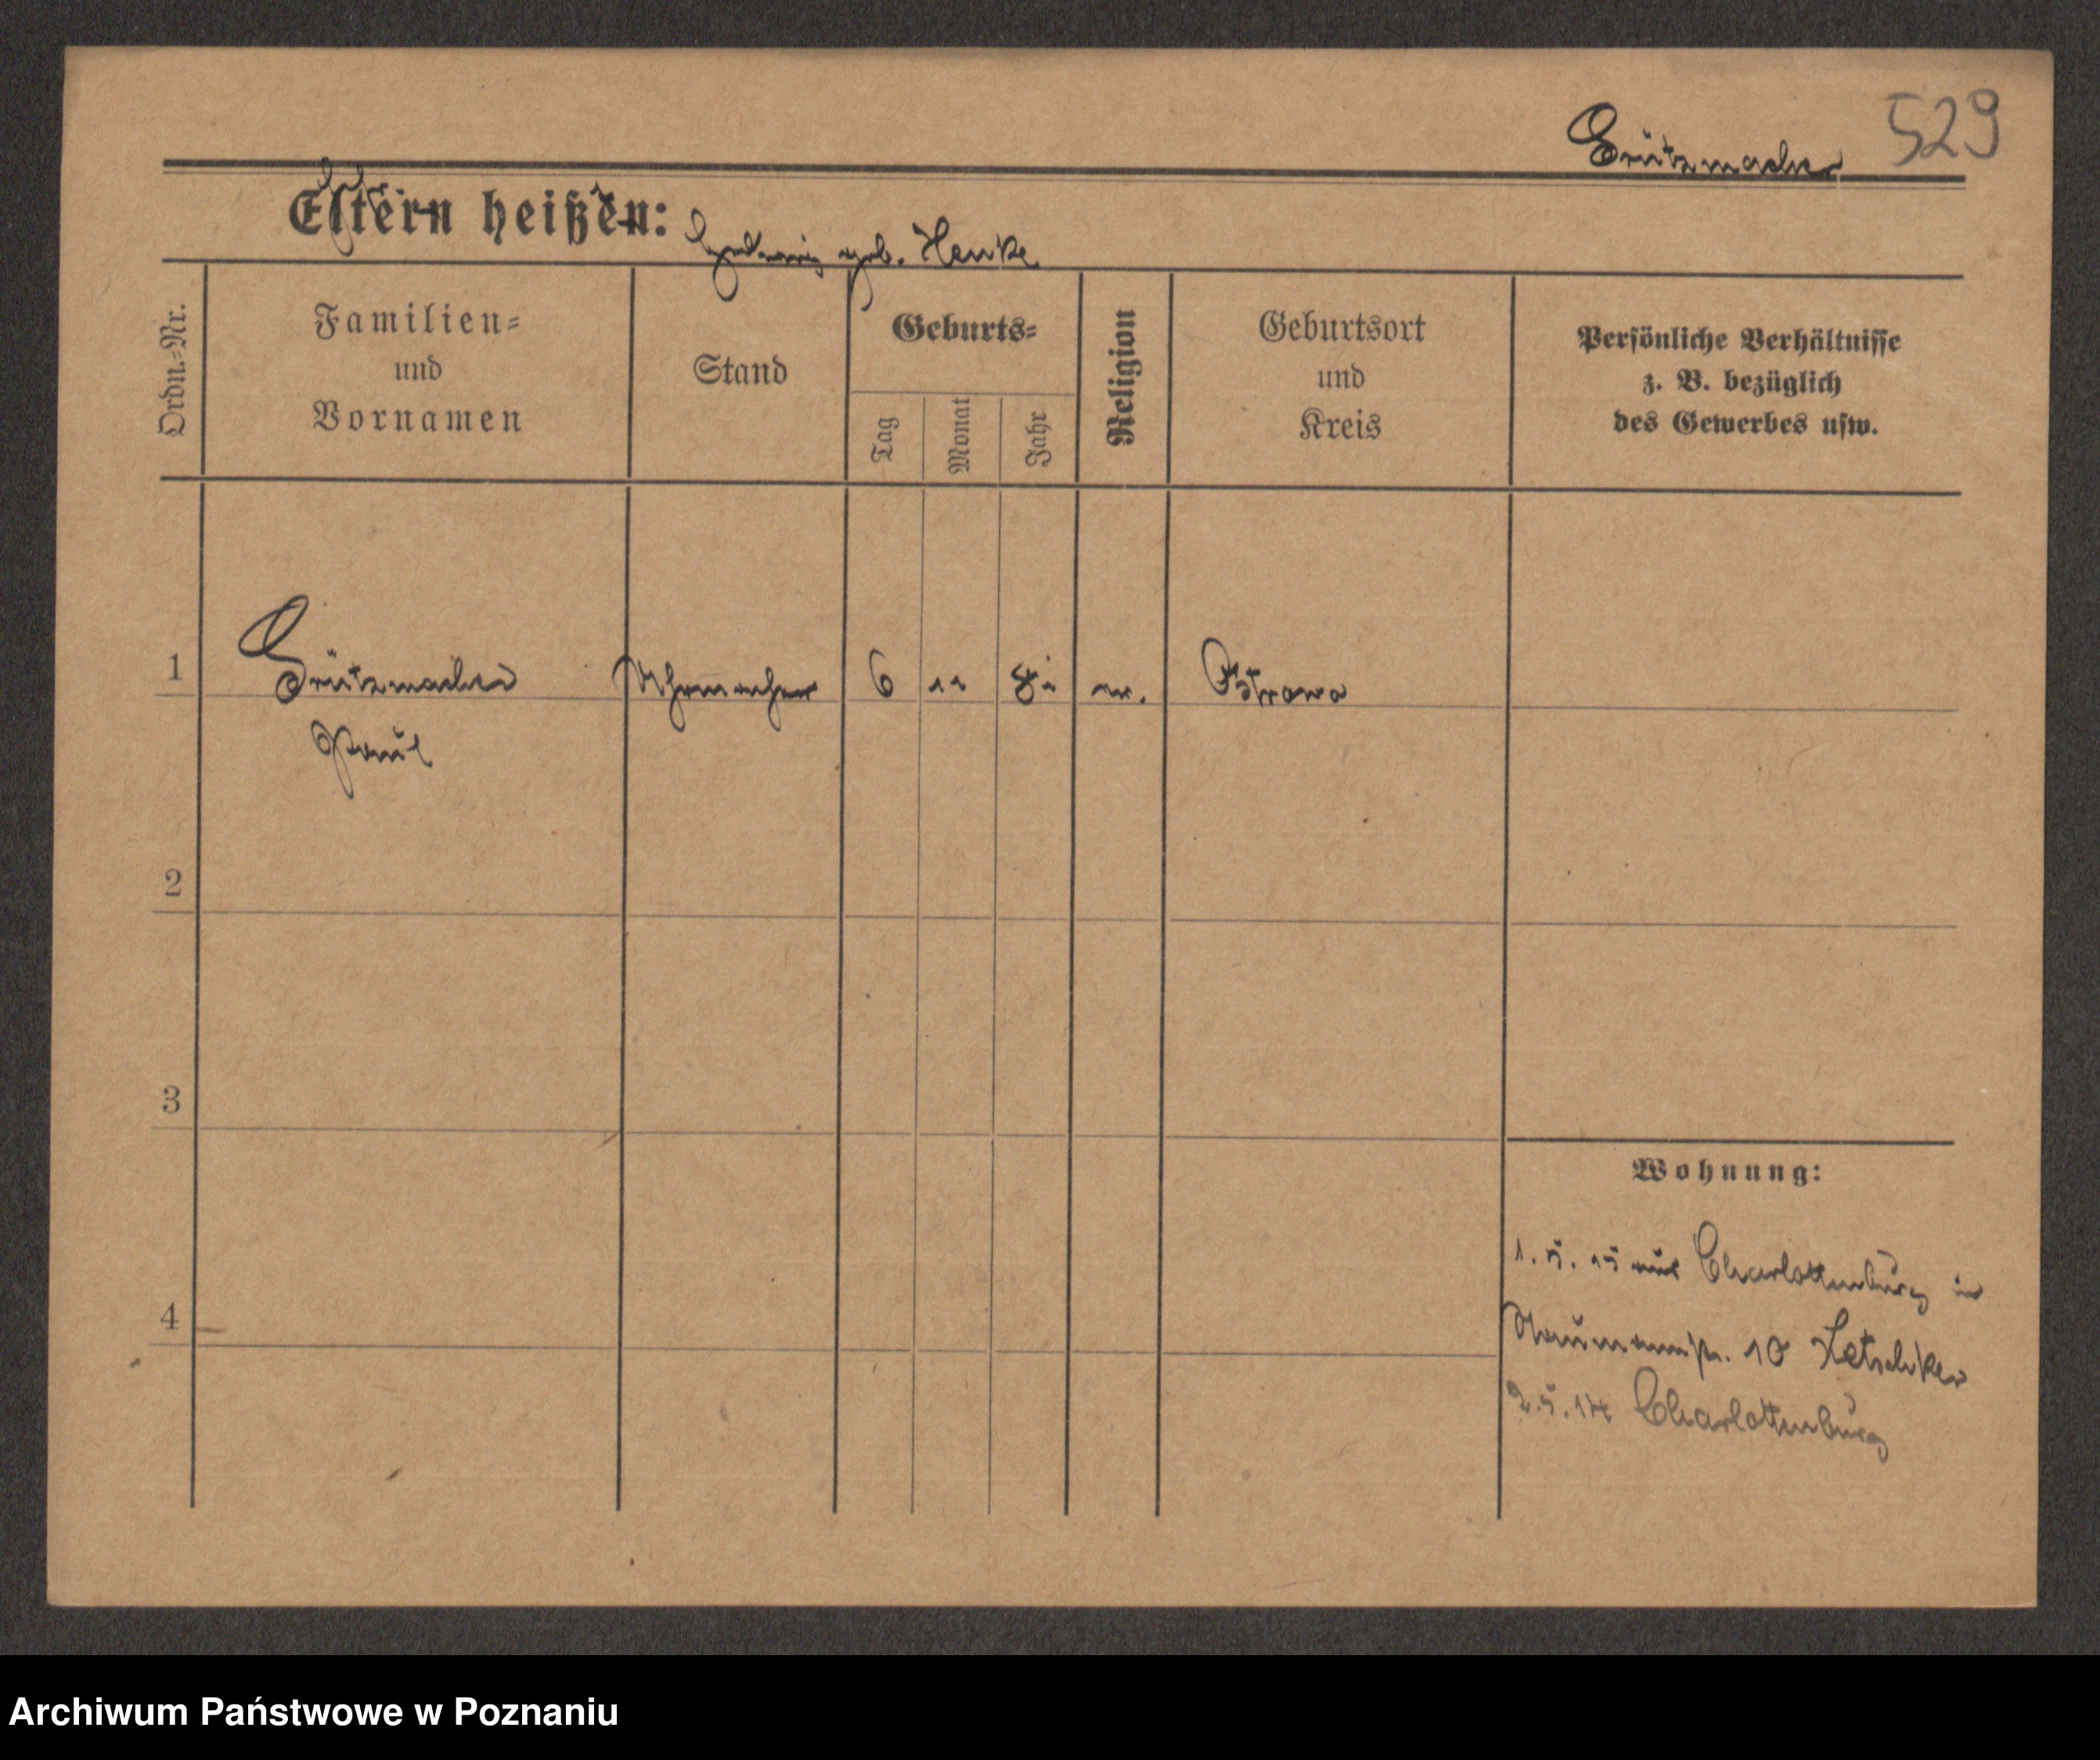 Grützmacher 529
Eltern heißen:
Hedwig geb. Henke
Ordn.-Nr.
Familien-
und
Vornamen
Stand
Geburts-
Tag
Monat
Jahr
Religion
Geburtsort
und
Kreis
Persönliche Verhältnisse
z. B. bezüglich
des Gewerbes usw.
1 Grützmacher Uhrmacher 6 11 ev. Ostrowo
Paul
2
3
4
Wohnung:
1. 5. 15 aus Charlottenburg in
Naumannstr. 10 Hetschker
2.5.17 Charlottenburg
Archiwum Państwowe w Poznaniu